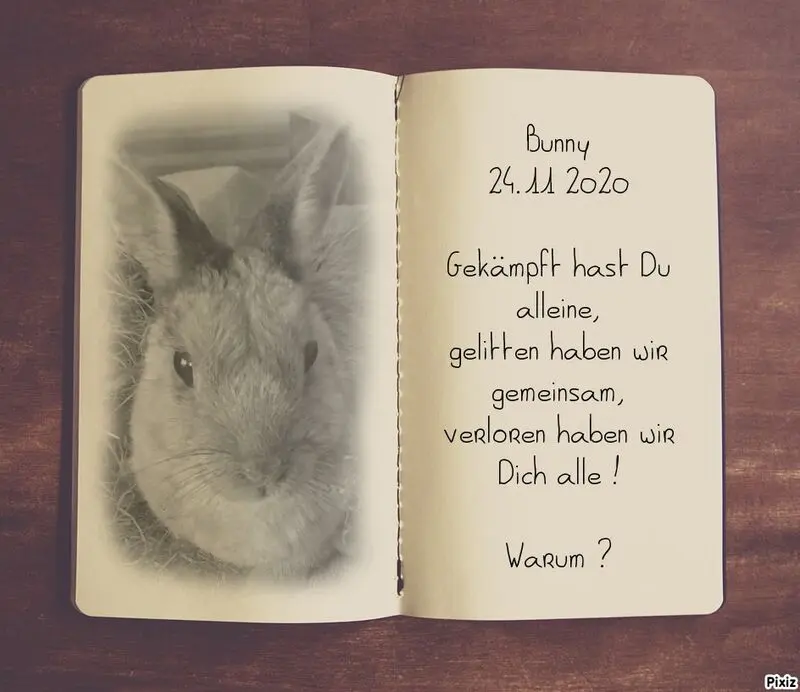 Bunny
24.11 2020
Gekämpft hast Du
alleine,
gelitten haben wir
gemeinsam,
verloren haben wir
Dich alle !
Warum ?
Pixiz